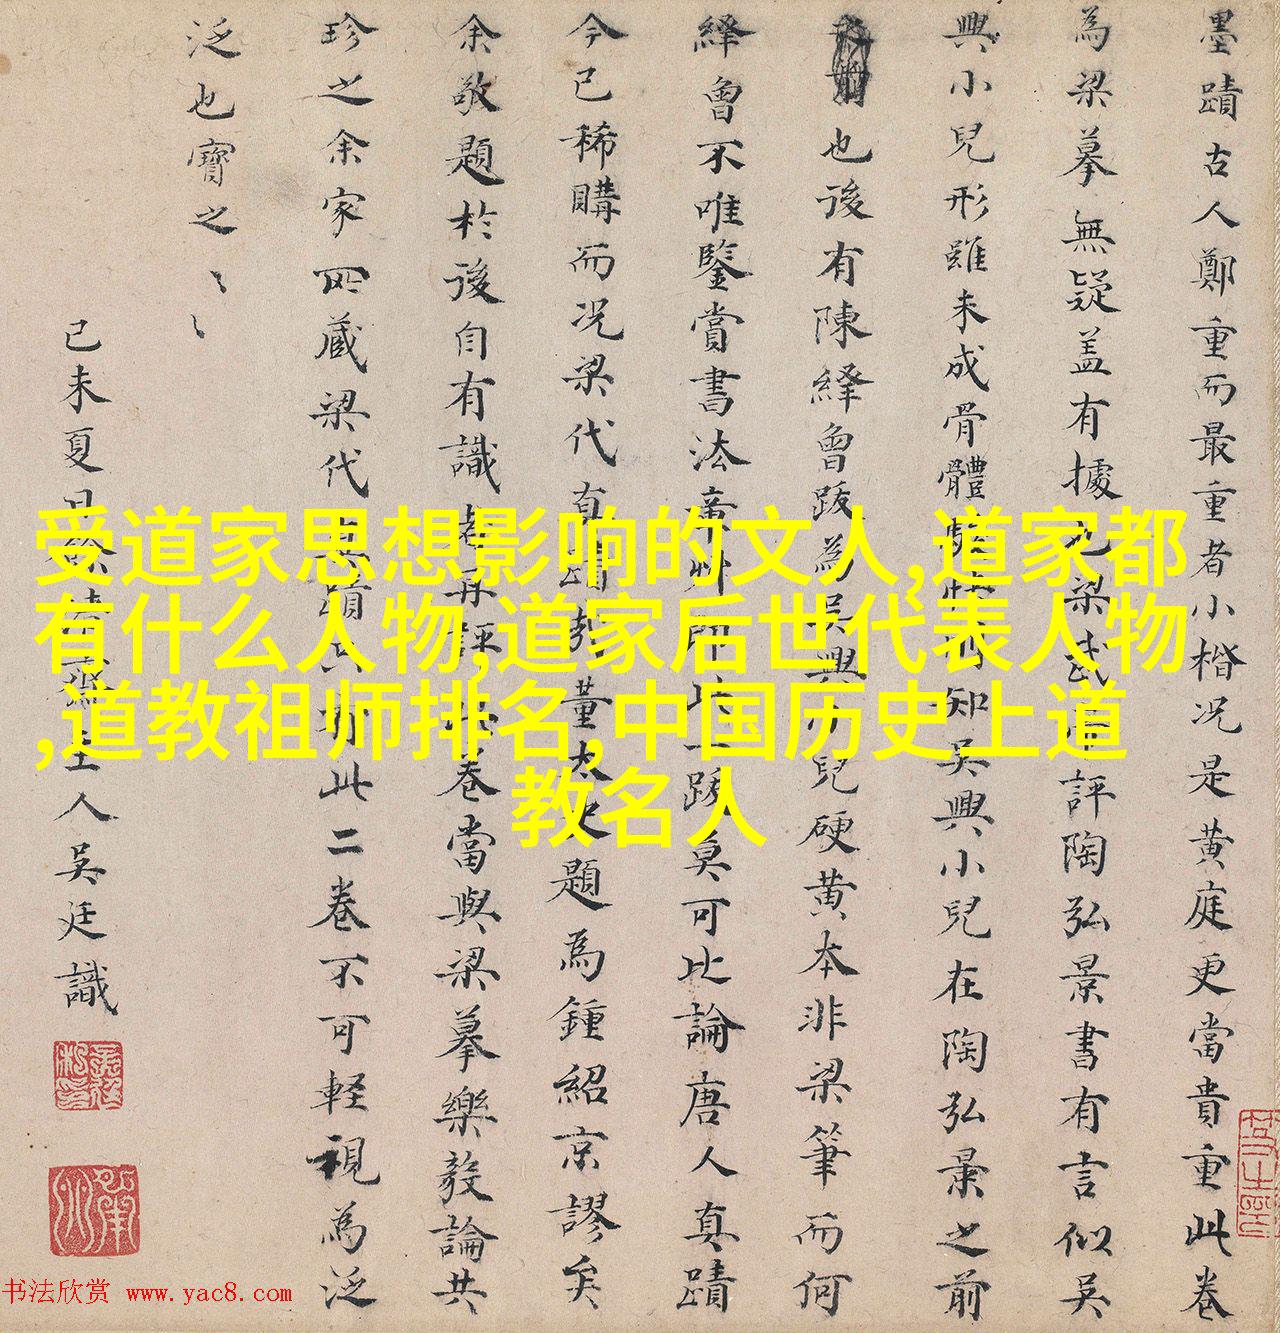 墨蹟古人鄭重而最重者小楷况是黄庭更當貴重此卷
為梁摹無疑盖有據梁武評陶弘景書有言似吴
興小兒形雖未成骨體知吴興小兒在陶弘景之前
也後有陳繹曾跋為吴興小兒硬黄本非梁筆而何
繹曾不唯鑒賞書法章艸即此一跋莫可比論唐人真蹟
今已稀購而况梁代真蹟董太史題為鍾紹京謬矣
余敬題於後自有識者再評此卷當與梁摹樂毅論共
珍之余家所藏梁代真蹟只此二卷不可輕視為泛
泛也寶之
己未夏日餘清齋主人吴廷識
受道家思想影响的文人,道家都
有什么人物,道家后世代表人物
,道教祖师排名,中国历史上道
教名人
书法欣赏 www.yac8.com